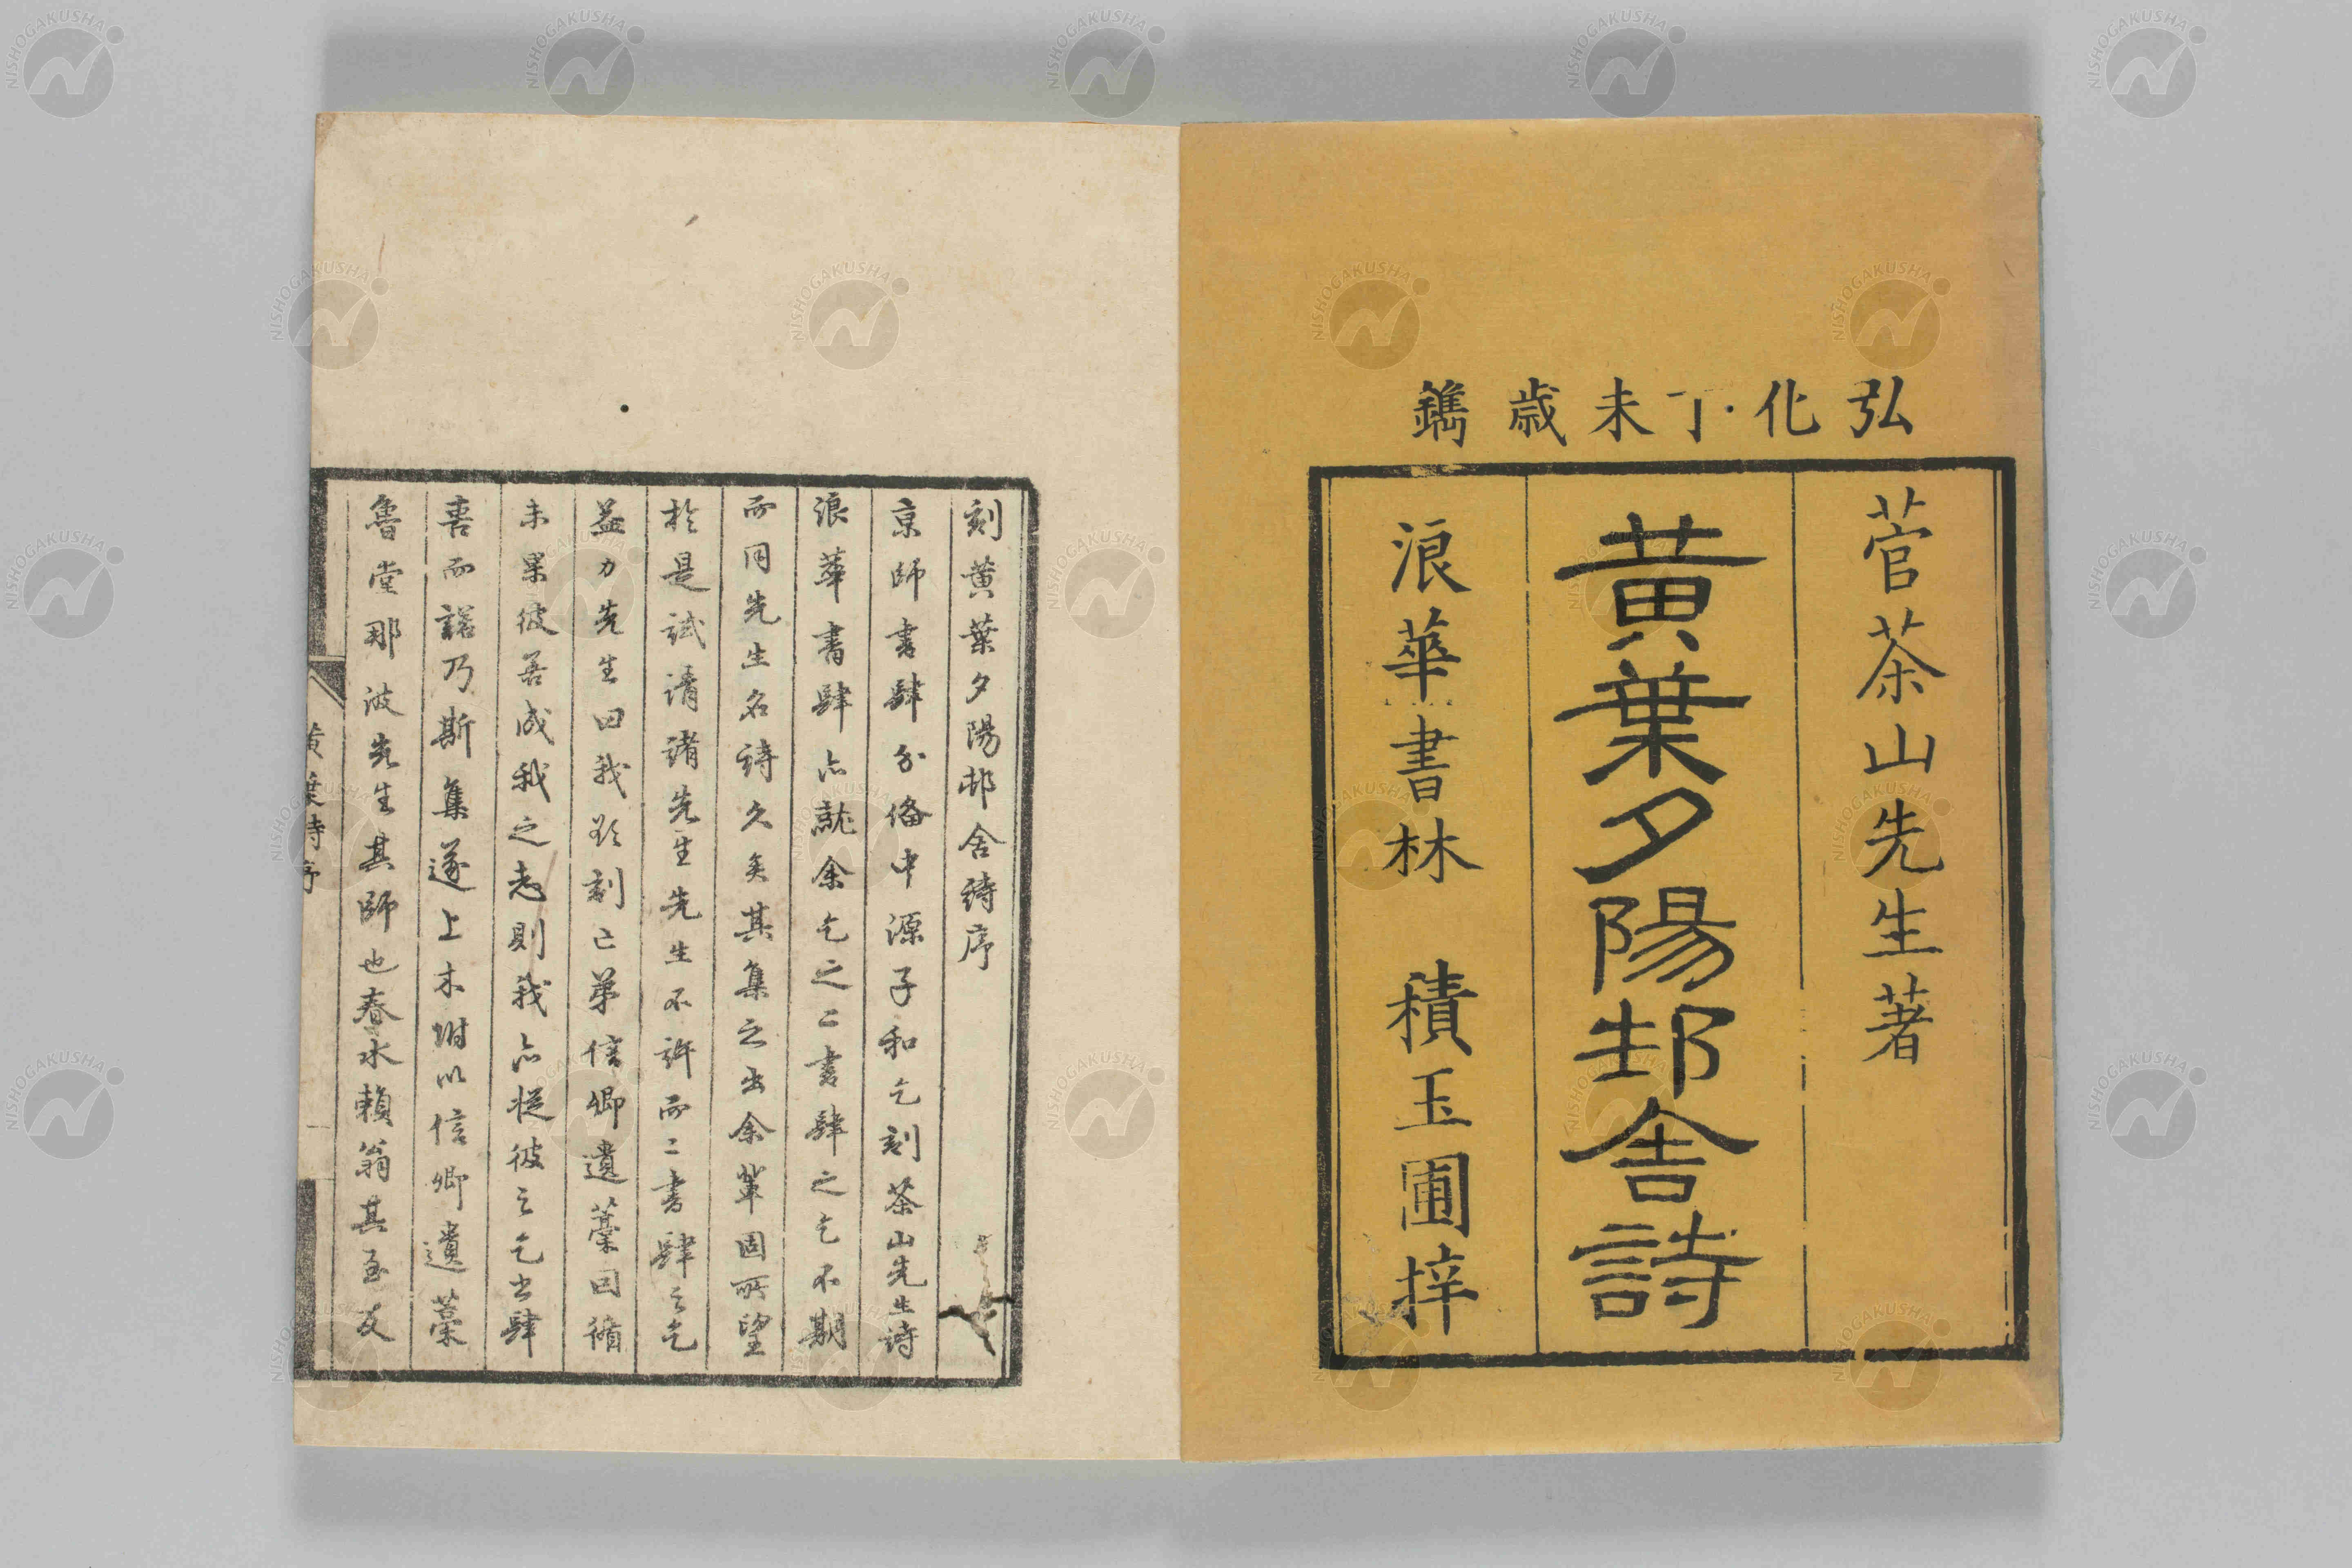 弘化丁未歳鐫
菅茶山先生著
黄葉夕陽邨舎詩
浪華書林 積玉圃梓
刻黄葉夕陽邨舎詩序
京師書肆介備中源子和乞刻茶山先生詩
浪華書肆亦就余乞之二書肆之乞不期
而同先生名詩久矣其集之出余輩固所望
於是試請諸先生先生不許而二書肆之乞
益力先生曰我欲刻亡弟信卿遺藁因循
未果彼吾成我之志則我亦従彼之乞書肆
喜而諾乃斯集遂上木附以信卿遺藁
魯堂那波先生其師也春水頼翁其至友
黄葉詩序
NISHOGAKUSHA